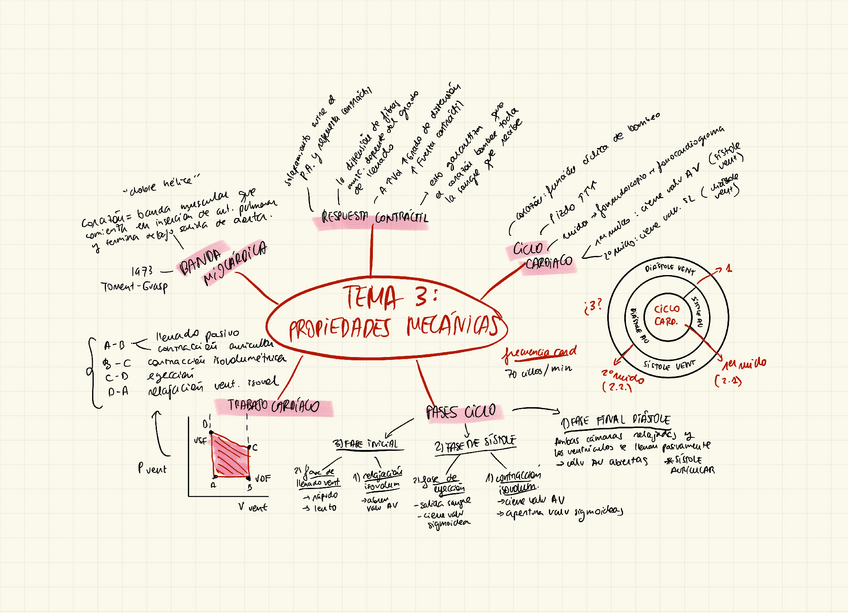 TEMA 3:
PROPIEDADES MECÁNICAS
BANDA
MIOCÁRDICA
"doble hélice"
corazón = banda muscular que
comienza en inserción de art. pulmonar
y termina debajo salida de aorta.
1973
Torrent-Guasp
RESPUESTA CONTRÁCTIL
silapamiento entre el
P.A. y respuesta contráctil
la distensión de fibras
musc. depende del grado
de llenado
A ↑Vol ↑Grado de distensión
↑ Fuerza contráctil
esto garantiza que
el corazón bombee toda
la sangre que recibe
CICLO
CARDIACO
corazón: función cíclica de bombeo
ruido → fonendoscopio → fonocardiograma
1er ruido: cierre valv AV (sístole
vent)
2º ruido: cierre valv. SL (diástole
vent)
DIÁSTOLE VENT
SÍSTOLE AU
DIÁSTOLE AU
SÍSTOLE VENT
CICLO
CARD.
1
¿3?
2º ruido
(2.2.)
1er ruido
(2.1)
frecuencia card
70 ciclos/min
FASES CICLO
1) FASE FINAL DIÁSTOLE
Ambas cámaras relajadas y
los ventrículos se llenan pasivamente
→ valv AV abiertas
* SÍSTOLE
AURICULAR
2) FASE DE SÍSTOLE
1) contracción
isovolum.
→ cierre valv AV
→ apertura valv sigmoideas
2) fase de
eyección
- salida sangre
- cierre valv
sigmoidea
3) FASE INICIAL
1) relajación
isovolum
→ abren
valv AV
2) fase de
llenado vent
→ rápido
→ lento
TRABAJO CARDÍACO
A-B
llenado pasivo
contracción auricular
B-C contracción isovolumétrica
C-D eyección
D-A relajación vent. isovol
P vent
D
VSF
C
A
B
VDF
V vent